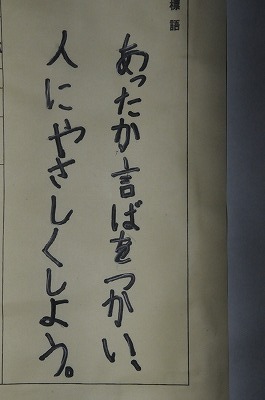 標語
あったか言ばをつかい、
人にやさしくしよう。